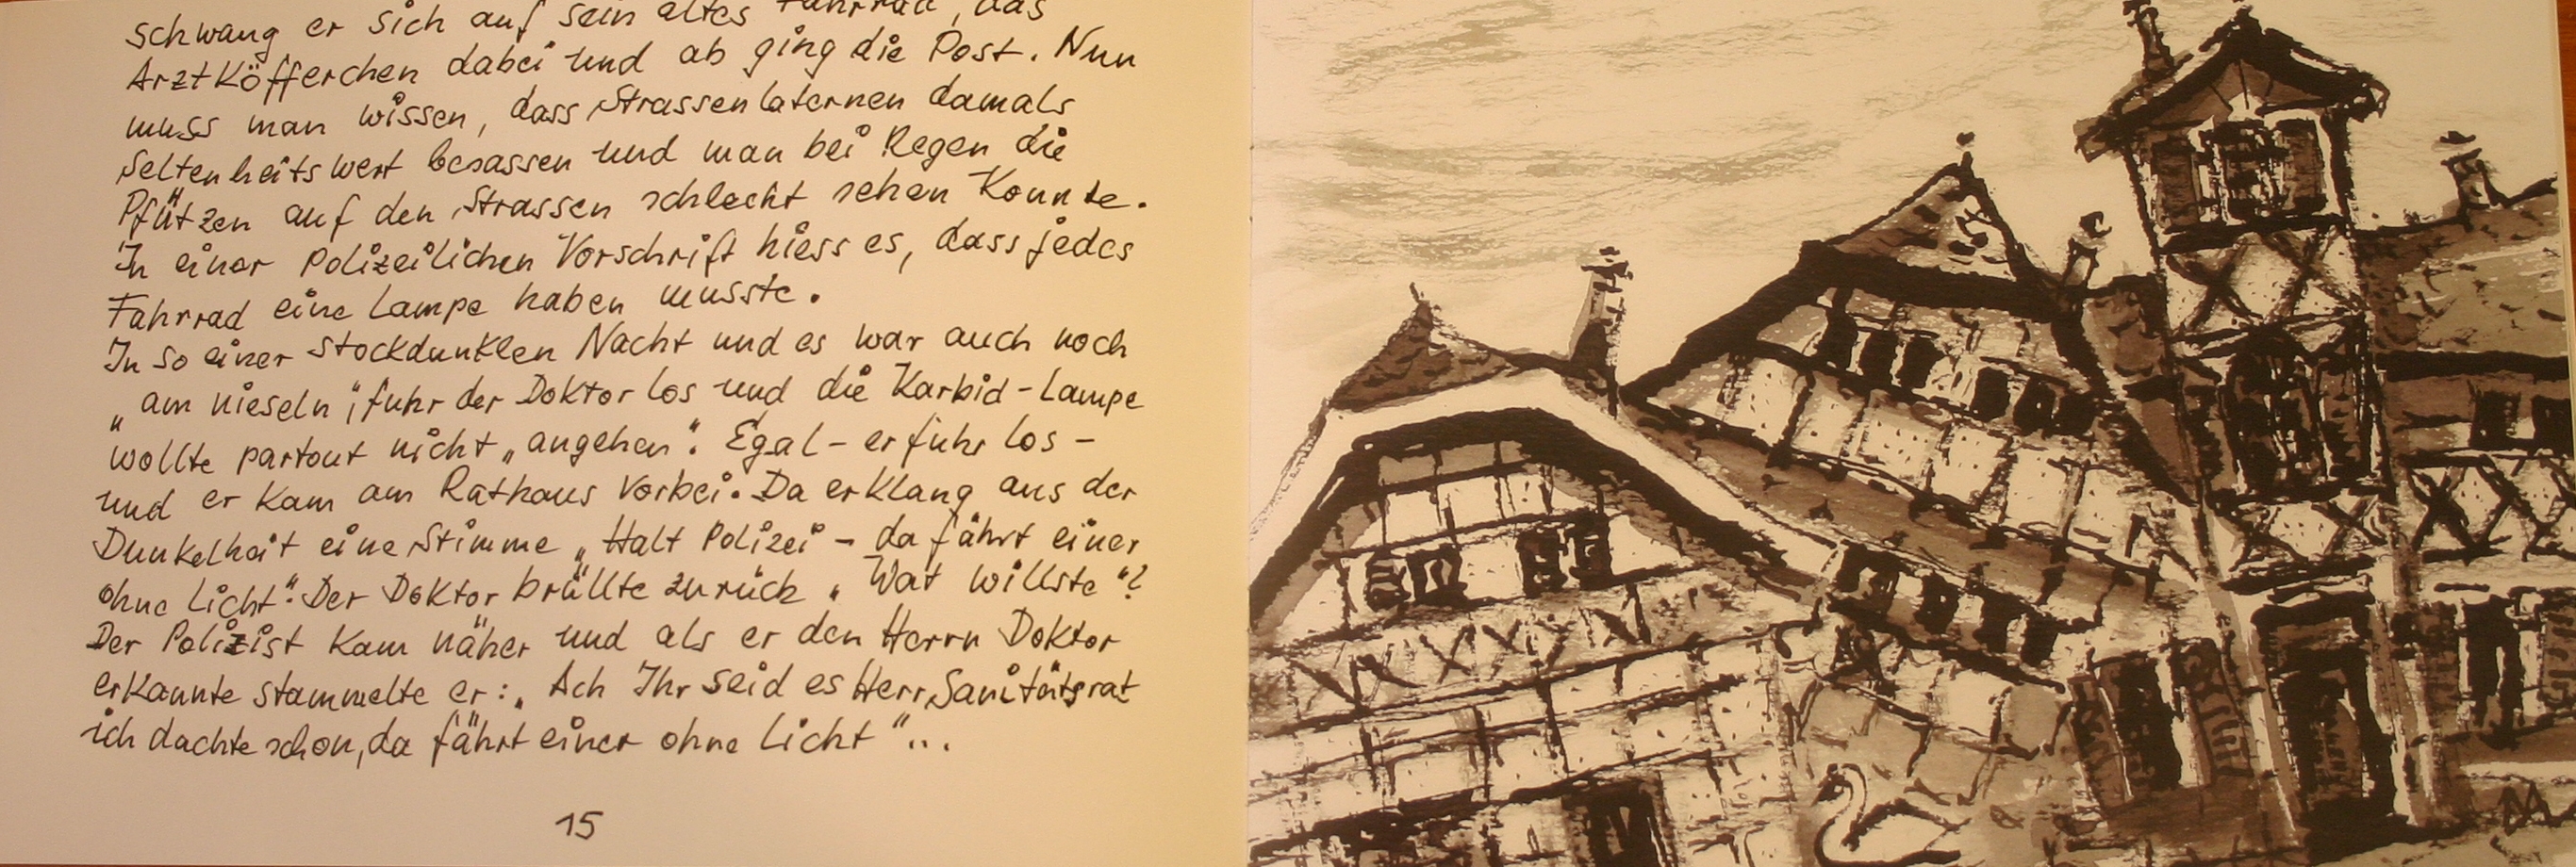 schwang er sich auf sein altes Fahrrad, das
Arztköfferchen dabei und ab ging die Post. Nun
muss man wissen, dass Strassenlaternen damals
Seltenheitswert besassen und man bei Regen die
Pfützen auf den Strassen schlecht sehen konnte.
In einer polizeilichen Vorschrift hiess es, dass jedes
Fahrrad eine Lampe haben musste.
In so einer stockdunklen Nacht und es war auch noch
„am nieseln“, fuhr der Doktor los und die Karbid-Lampe
wollte partout nicht „angehen“. Egal - er fuhr los -
und er kam am Rathaus vorbei. Da erklang aus der
Dunkelheit eine Stimme „Halt Polizei - da fährt einer
ohne Licht“. Der Doktor brüllte zurück „Wat willste“?
Der Polizist kam näher und als er den Herrn Doktor
erkannte stammelte er: „Ach Ihr seid es Herr Sanitätsrat
ich dachte schon, da fährt einer ohne Licht“...
15